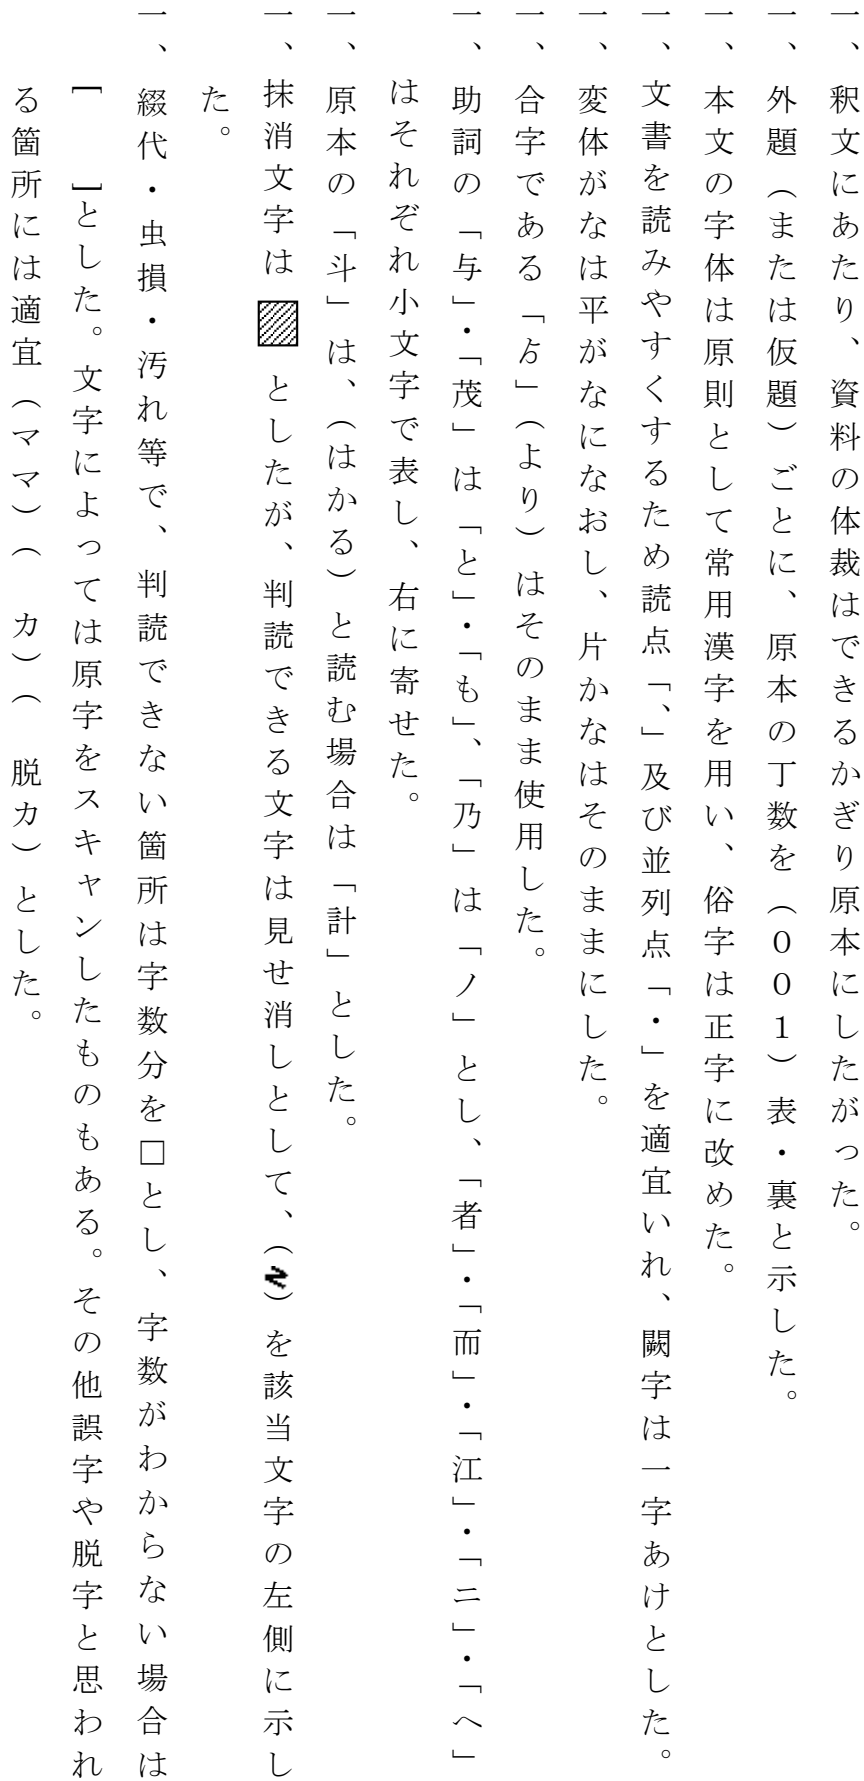 一、釈文にあたり、資料の体裁はできるかぎり原本にしたがった。
一、外題（または仮題）ごとに、原本の丁数を（００１）表・裏と示した。
一、本文の字体は原則として常用漢字を用い、俗字は正字に改めた。
一、文書を読みやすくするため読点「、」及び並列点「・」を適宜いれ、闕字は一字あけとした。
一、変体がなは平がなになおし、片かなはそのままにした。
一、合字である「ゟ」（より）はそのまま使用した。
一、助詞の「与」・「茂」は「と」・「も」、「乃」は「ノ」とし、「者」・「而」・「江」・「ニ」・「へ」
はそれぞれ小文字で表し、右に寄せた。
一、原本の「斗」は、（はかる）と読む場合は「計」とした。
一、抹消文字は▨としたが、判読できる文字は見せ消しとして、（）を該当文字の左側に示し
た。
一、綴代・虫損・汚れ等で、判読できない箇所は字数分を□とし、字数がわからない場合は
［　］とした。文字によっては原字をスキャンしたものもある。その他誤字や脱字と思われ
る箇所には適宜（ママ）（　カ）（　脱カ）とした。